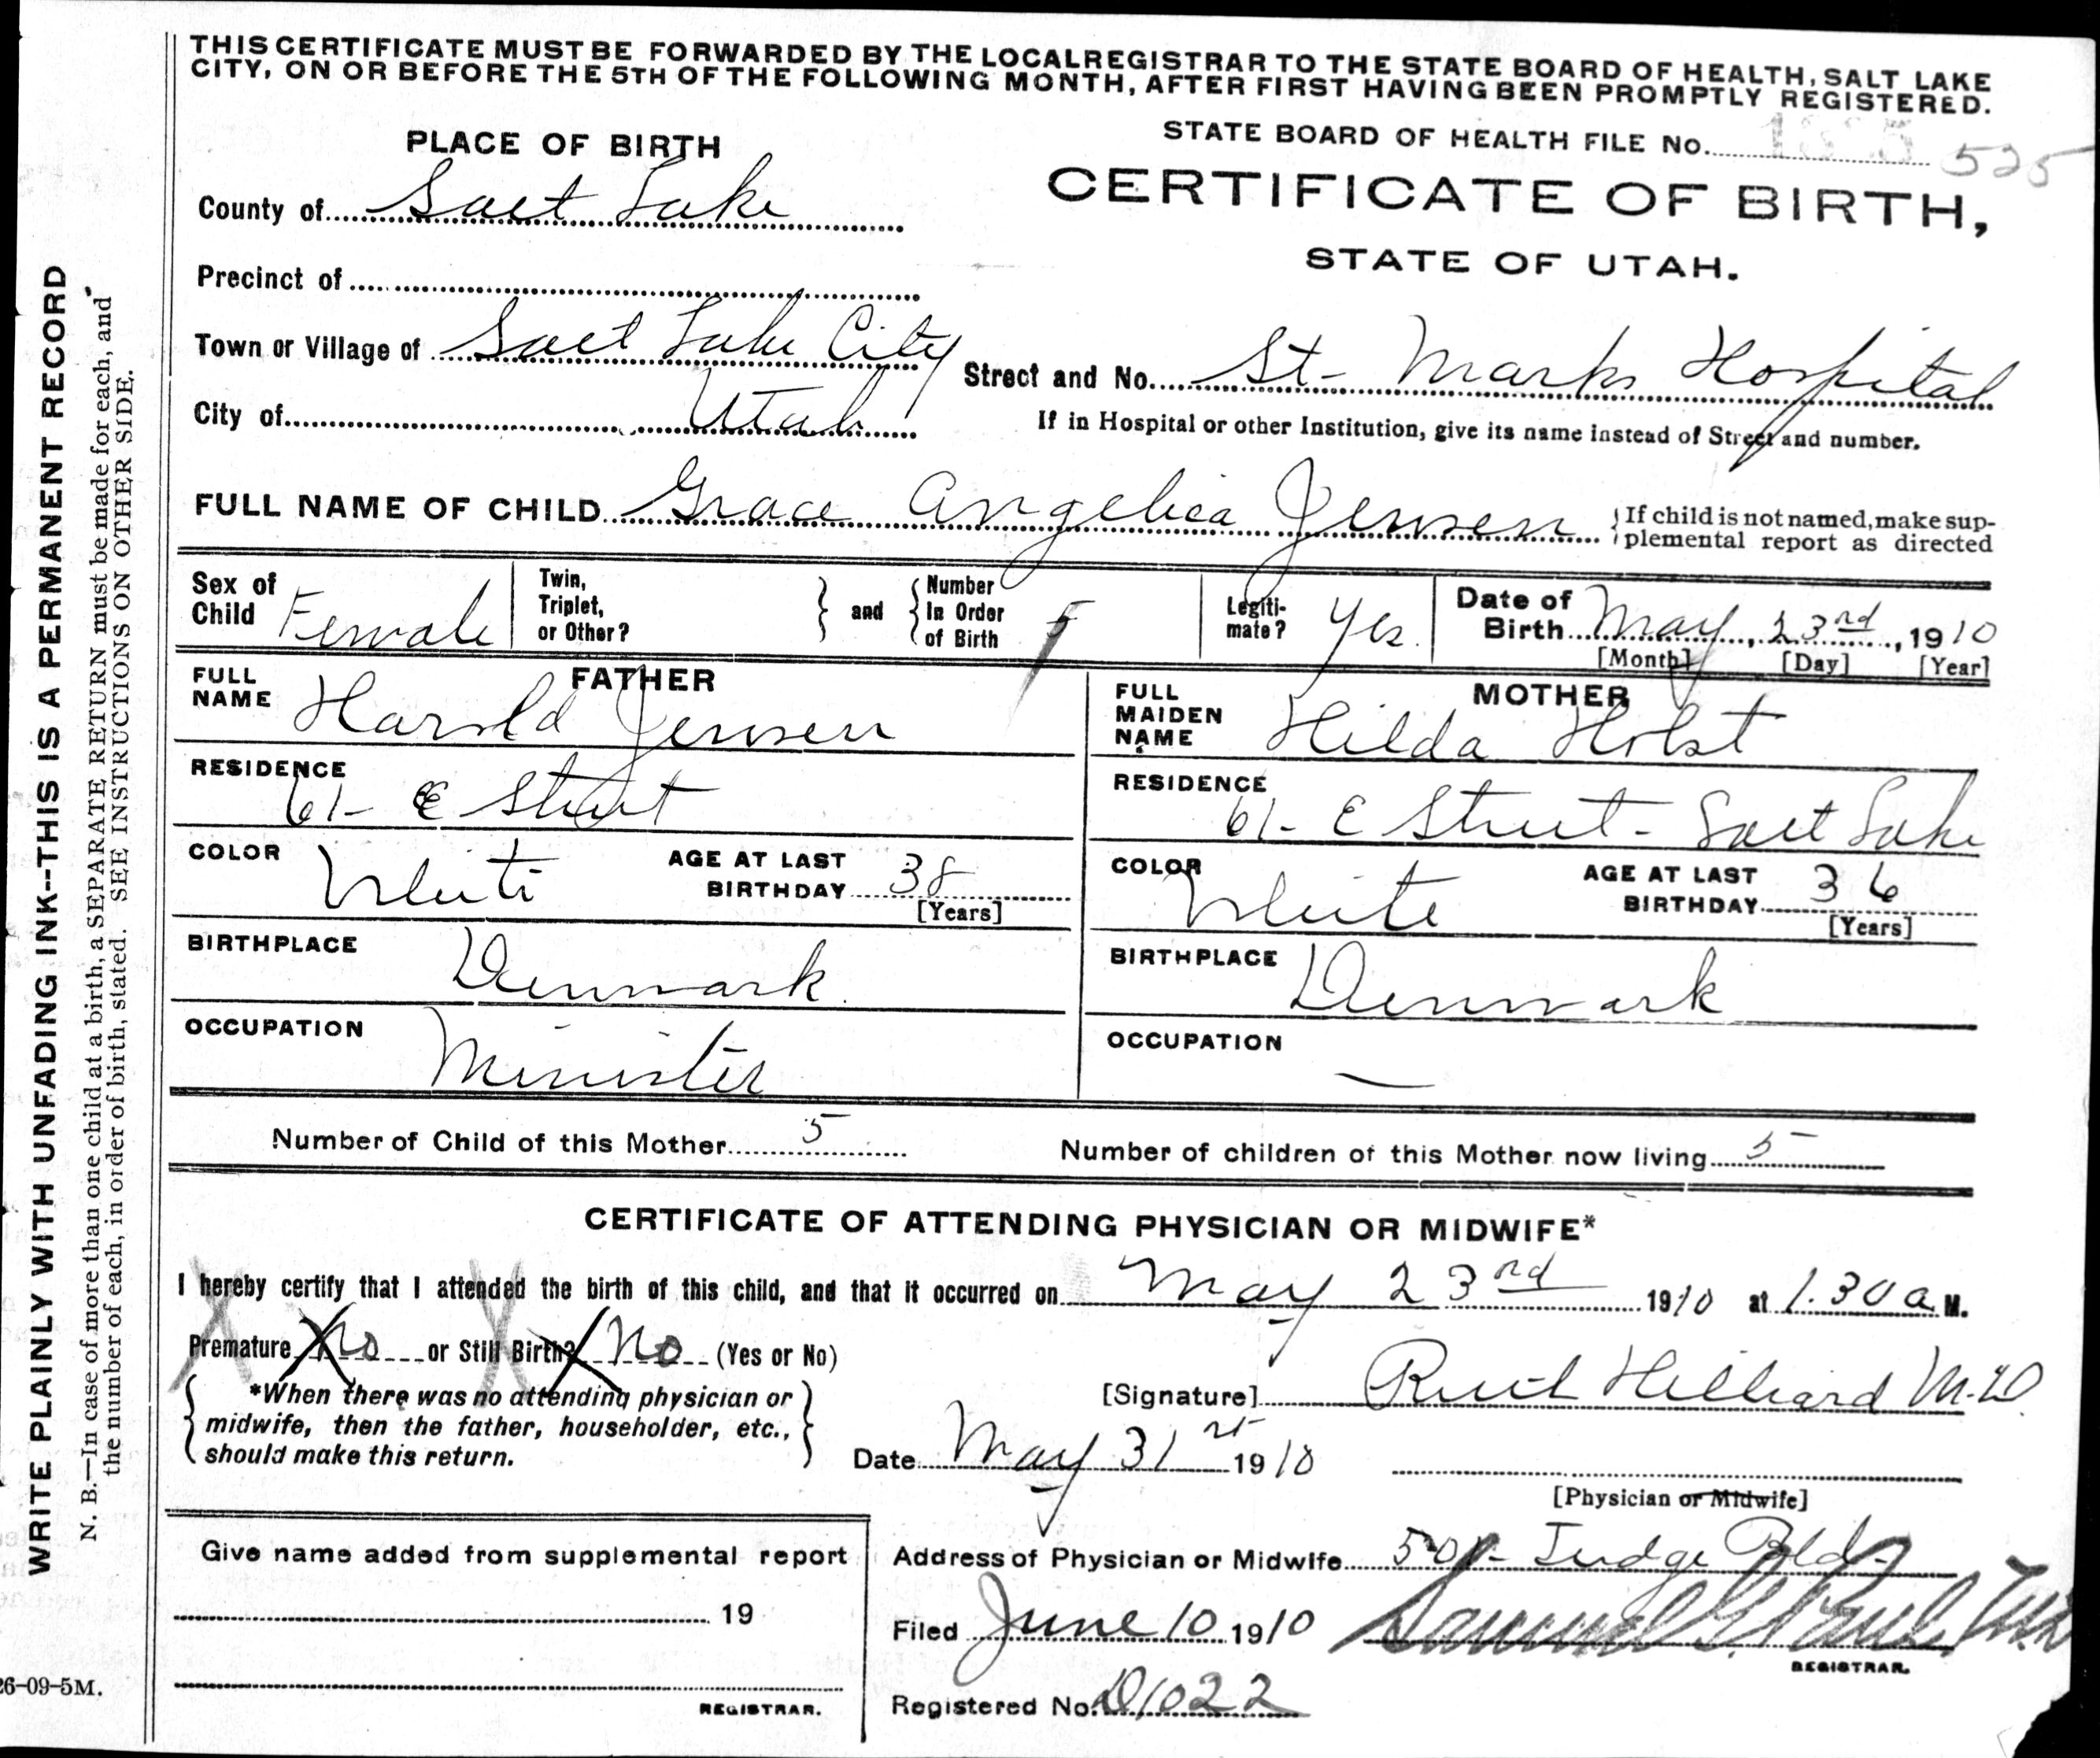 THIS CERTIFICATE MUST BE FORWARDED BY THE LOCAL REGISTRAR TO THE STATE BOARD OF HEALTH, SALT LAKE
CITY, ON OR BEFORE THE 5TH OF THE FOLLOWING MONTH, AFTER FIRST HAVING BEEN PROMPTLY REGISTERED.
PLACE OF BIRTH
STATE BOARD OF HEALTH FILE No. 525
County of Salt Lake
CERTIFICATE OF BIRTH,
STATE OF UTAH.
Precinct of
Town or Village of Salt Lake City
Street and No. St- Marks Hospital
City of Utah
If in Hospital or other Institution, give its name instead of Street and number.
FULL NAME OF CHILD Grace Angelica Jensen
{If child is not named, make sup-
plemental report as directed
Sex of Child Female
Twin, Triplet, or Other?
} and { Number In Order of Birth 5
Legiti-mate? Yes.
Date of Birth May, 23rd, 1910
[Month] [Day] [Year]
FATHER
FULL NAME Harold Jensen
RESIDENCE 61- E Street
COLOR White
AGE AT LAST BIRTHDAY 38
[Years]
BIRTHPLACE Denmark
OCCUPATION Minister
MOTHER
FULL MAIDEN NAME Hilda Holst
RESIDENCE 61- E Street- Salt Lake
COLOR White
AGE AT LAST BIRTHDAY 36
[Years]
BIRTHPLACE Denmark
OCCUPATION —
Number of Child of this Mother 5
Number of children of this Mother now living 5
CERTIFICATE OF ATTENDING PHYSICIAN OR MIDWIFE*
I hereby certify that I attended the birth of this child, and that it occurred on May 23rd 1910 at 1.30 a M.
Premature No or Still Birth? No (Yes or No)
{ *When there was no attending physician or
midwife, then the father, householder, etc.,
should make this return. }
[Signature] Ruth Hilliard M.D.
Date May 31st 1910
[Physician or Midwife]
Give name added from supplemental report
19
REGISTRAR.
Address of Physician or Midwife 501- Judge Bld-
Filed June 10 1910 Samuel G. Paul
REGISTRAR.
Registered No. D1022
WRITE PLAINLY WITH UNFADING INK--THIS IS A PERMANENT RECORD
N. B.—In case of more than one child at a birth, a SEPARATE RETURN must be made for each, and
the number of each, in order of birth, stated. SEE INSTRUCTIONS ON OTHER SIDE.
26-09-5M.